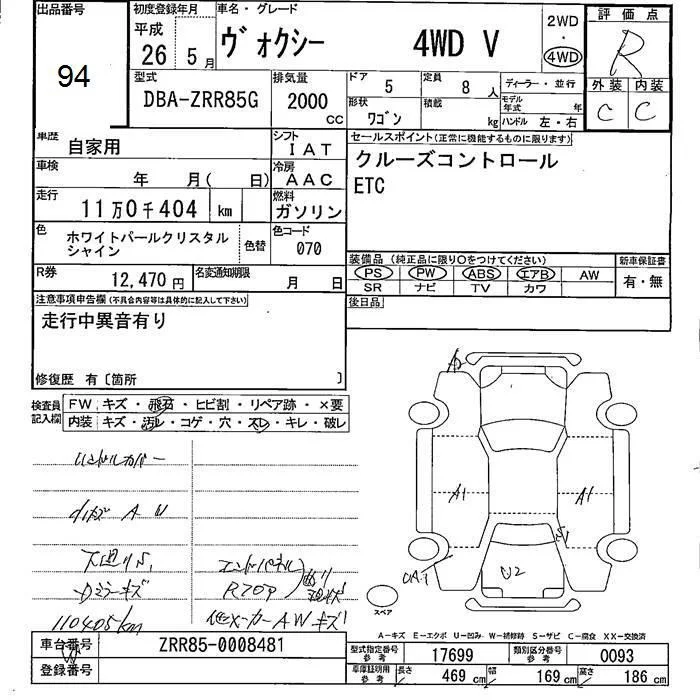 出品番号
94
初度登録年月
平成
26 5月
車名・グレード
ヴォクシー 4WD V
2WD
・
4WD
評価点
R
外装 内装
C C
型式
DBA-ZRR85G
排気量
2000 cc
ドア 5
定員 8 人
形状 ワゴン
積載 kg
ディーラー・並行
モデル年式 年
ハンドル 左・右
車歴 自家用
シフト IAT
車検 年 月( 日)
冷房 AAC
走行 11万0千404 km
燃料 ガソリン
色 ホワイトパールクリスタルシャイン
色替
色コード 070
R券 12,470円
名変通知期限 月 日
セールスポイント(正常に機能するものに限ります)
クルーズコントロール
ETC
装備品(純正品に限り〇をつけてください)
PS PW ABS エアB AW
SR ナビ TV カワ
新車保証書
有・無
後日品
注意事項申告欄(不具合内容等は具体的に記入して下さい)
走行中異音有り
修復歴 有〔箇所 〕
検査員記入欄
FW キズ・飛石・ヒビ割・リペア跡・×要
内装 キズ・汚レ・コゲ・穴・スレ・キレ・破レ
ハンドルカバー
下廻りS
Dミラーキズ
110405km
エンドパネル
Rフロア
他メーカーAWキズ
A2
A1
A1
U2
スペア
A-キズ E-エクボ U-凹み W-補修跡 S-サビ C-腐食 XX-交換済
車台番号 ZRR85-0008481
登録番号
型式指定番号 参考 17699
類別区分番号 参考 0093
車庫証明用 参考 長さ 469 cm 幅 169 cm 高さ 186 cm